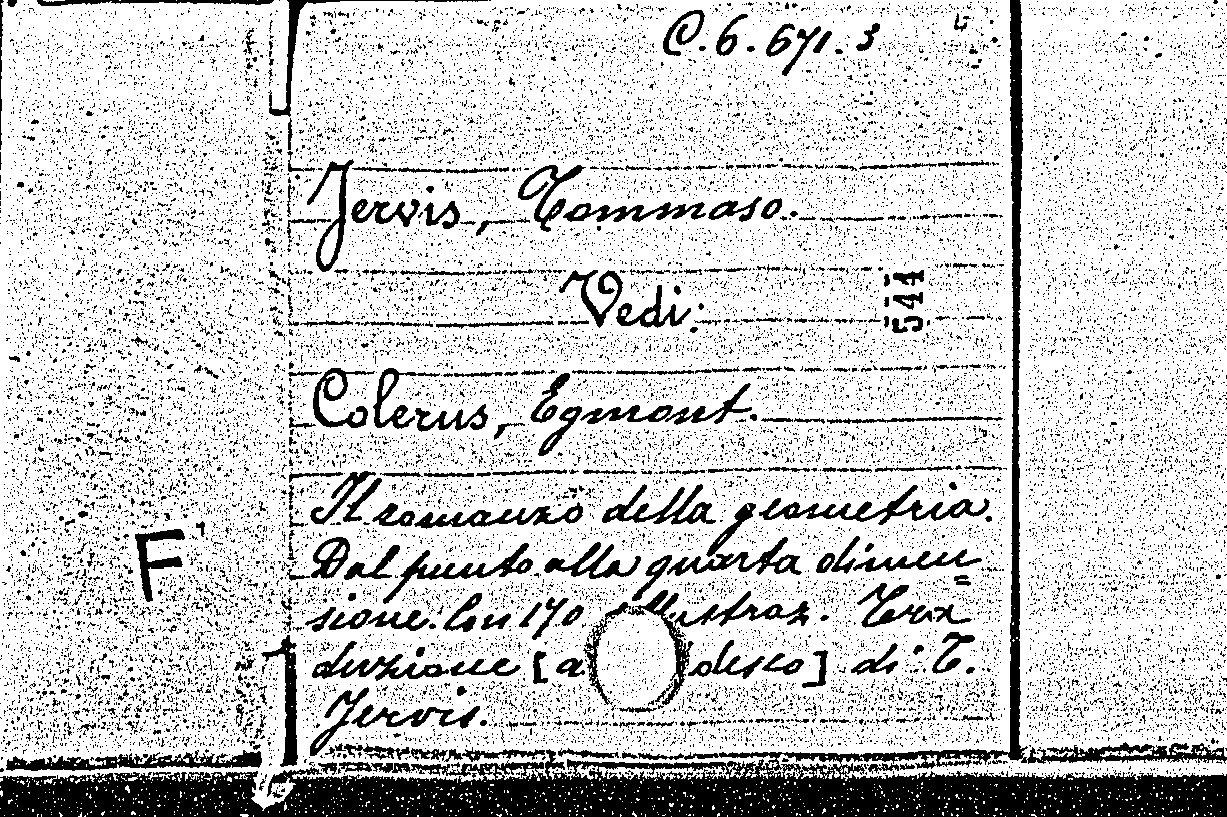 C.6.671.3
Jervis, Tommaso.
Vedi:
544
Colerus, Egmont.
Il romanzo della geometria.
Dal punto alla quarta dimen=
sione. Con 170 illustraz. Tra
duzione [a desco] di T.
Jervis.
F